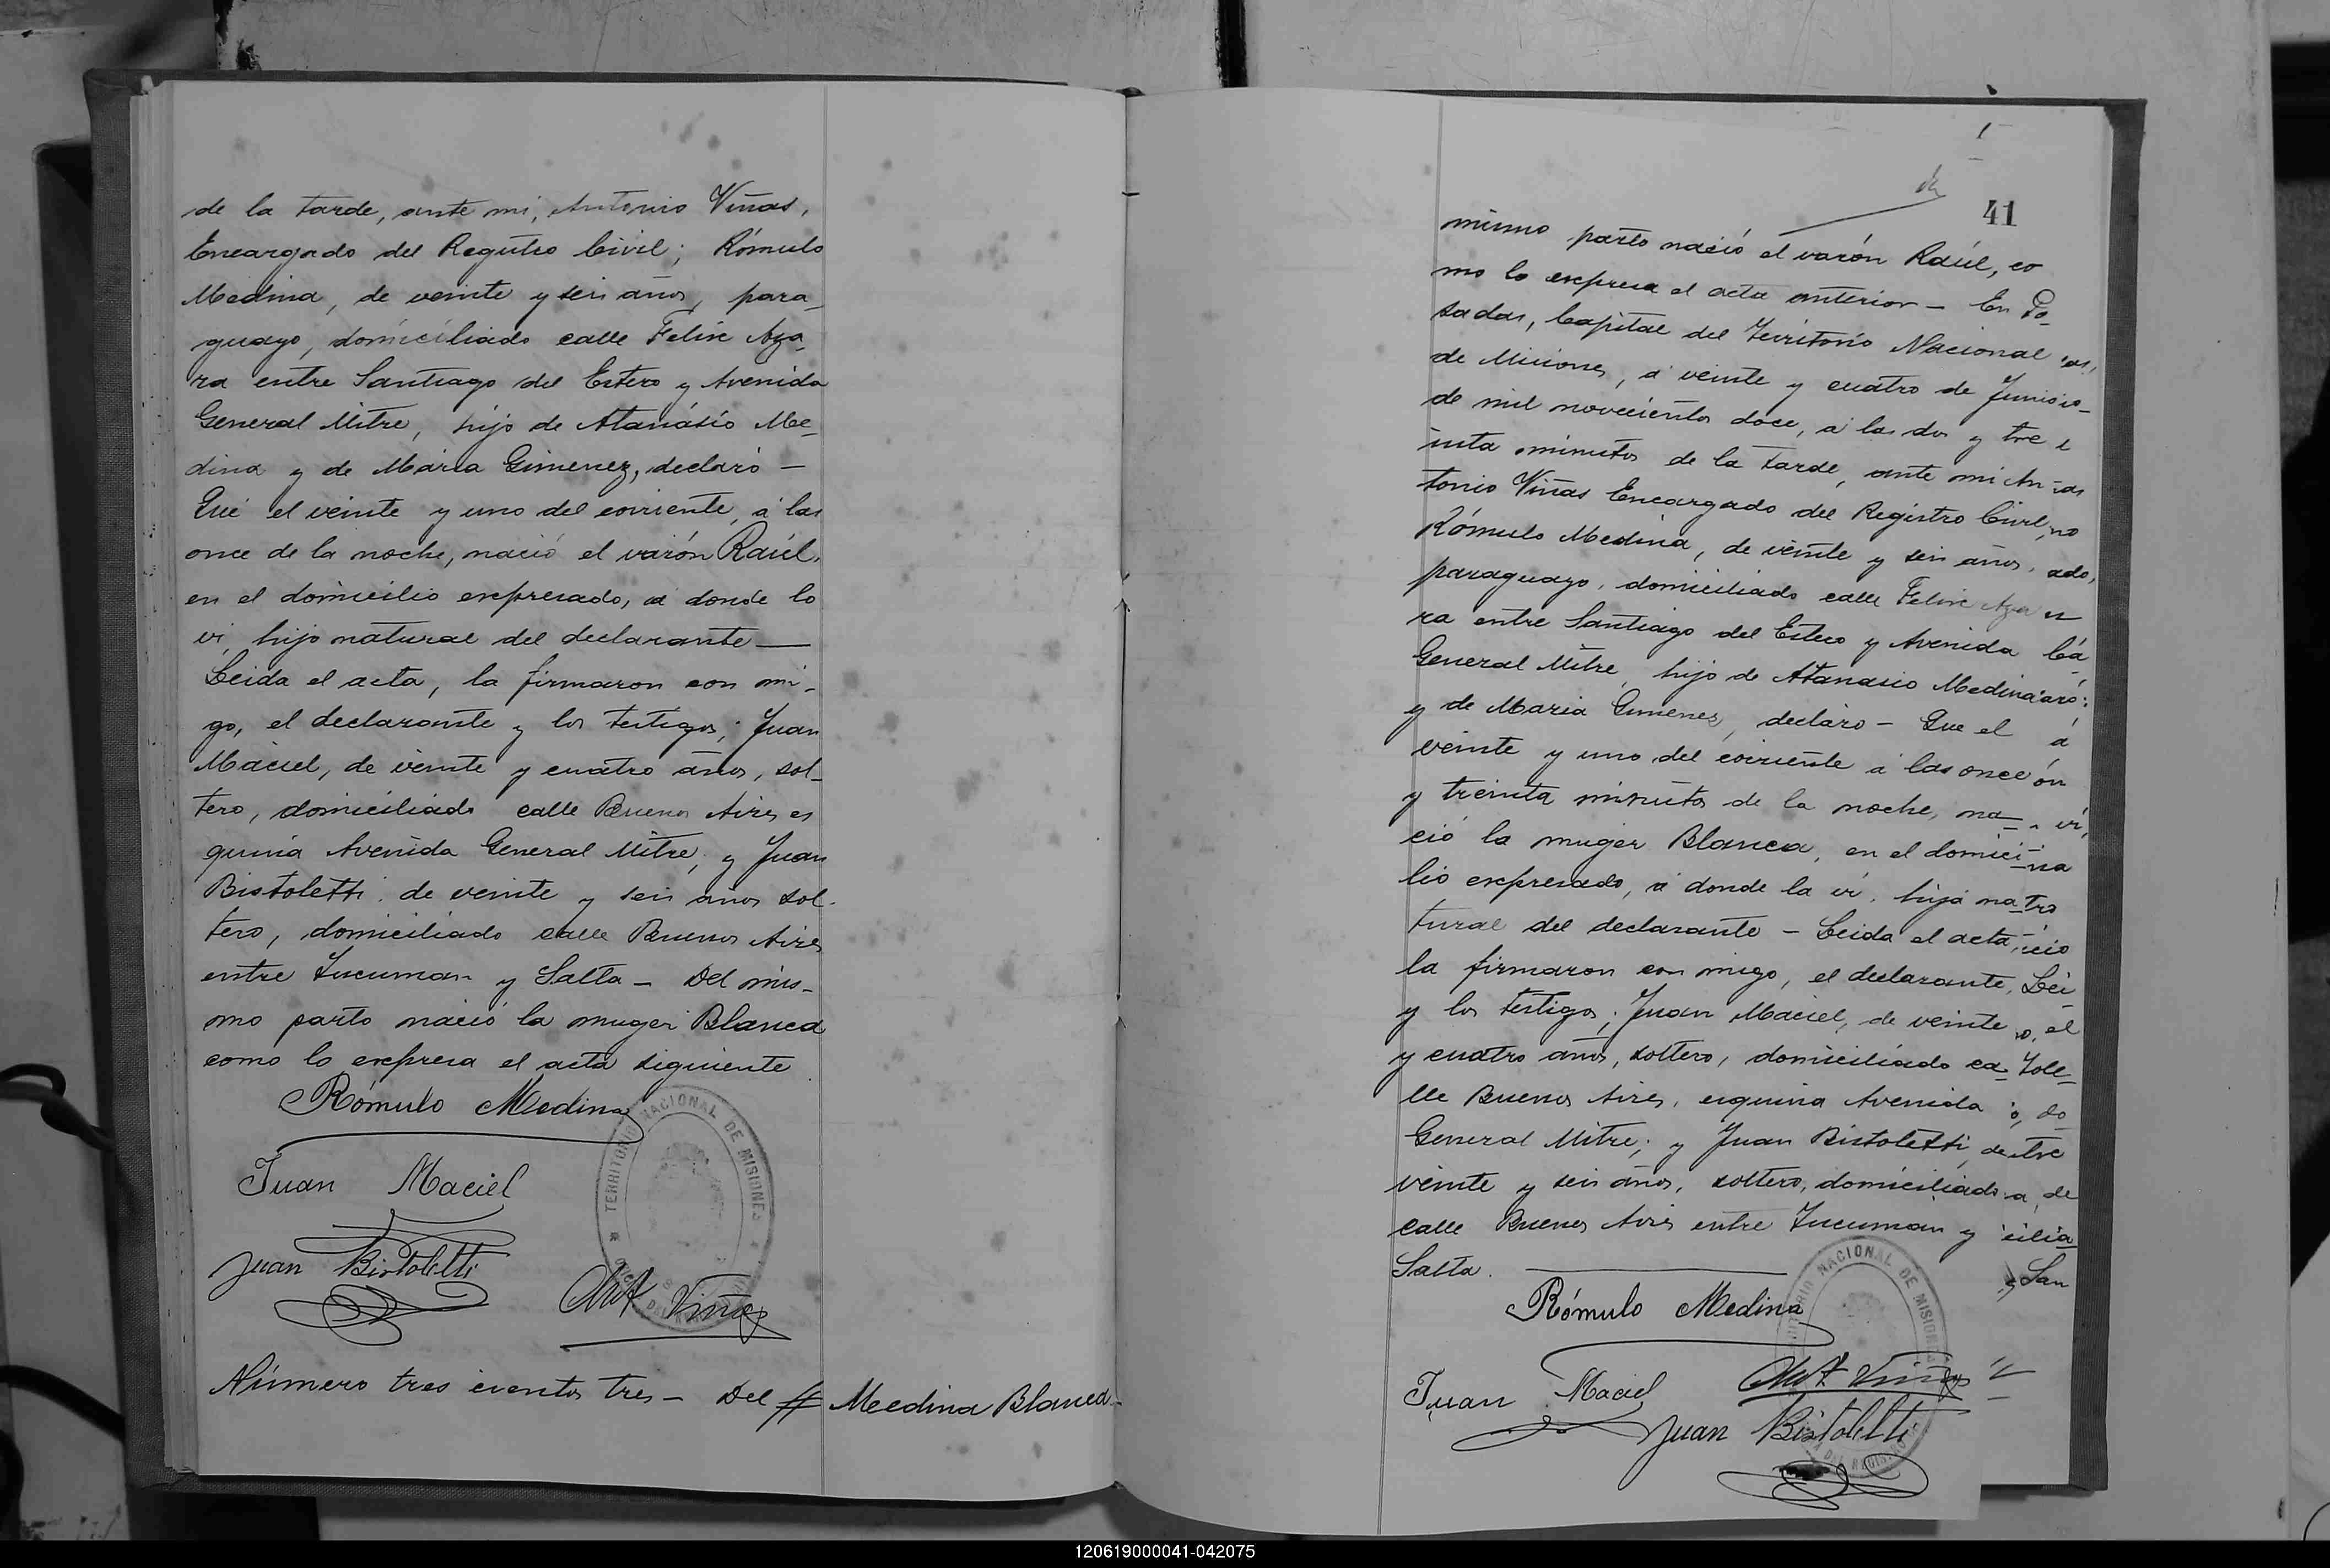 de la tarde, ante mi, Antonio Viñas,
Encargado del Registro Civil; Rómulo
Medina, de veinte y seis años, para-
guayo, domiciliado calle Felix Aza-
ra entre Santiago del Estero y Avenida
General Mitre, hijo de Atanásio Me-
dina y de Maria Gimenez, declaró —
Que el veinte y uno del corriente, á las
once de la noche, nació el varón Raúl,
en el domicilio expresado, á donde lo
vi, hijo natural del declarante —
Leida el acta, la firmaron con mi-
go, el declarante y los testigos; Juan
Maciel, de veinte y cuatro años, sol-
tero, domiciliado calle Buenos Aires es
quina Avenida General Mitre; y Juan
Bistoletti, de veinte y seis años sol-
tero, domiciliado calle Buenos Aires
entre Tucuman y Salta — Del mis-
mo parto nació la muger Blanca
como lo expresa el acta siguiente
Rómulo Medina
Juan Maciel
Juan Bistoletti
Ant Viñas
TERRITORIO NACIONAL DE MISIONES
Número tres cientos tres — Del # Medina Blanca
41
mismo parto nació el varón Raúl, co
mo lo expresa el acta anterior — En Po-
sadas, Capital del Territorio Nacional
de Misiones, á veinte y cuatro de Junio
de mil novecientos doce, á las dos y tre
inta minutos de la tarde, ante mi An-
tonio Viñas Encargado del Registro Civil,
Rómulo Medina, de veinte y seis años,
paraguayo, domiciliado calle Felix Aza
ra entre Santiago del Estero y Avenida
General Mitre, hijo de Atanasio Medina
y de Maria Gimenes, declaro — Que el
veinte y uno del corriente á las once
y treinta minutos de la noche, na-
ció la muger Blanca, en el domici-
lio expresado, á donde la vi, hija na-
tural del declarante — Leida el acta,
la firmaron con migo, el declarante,
y los testigos; Juan Maciel, de veinte
y cuatro años, soltero, domiciliado ca-
lle Buenos Aires, esquina Avenida
General Mitre; y Juan Bistoletti, de
veinte y seis años, soltero, domiciliado
calle Buenos Aires entre Tucuman y
Salta.
Rómulo Medina
Ant Viñas
Juan Maciel
Juan Bistoletti
NACIONAL DE MISIONES
120619000041-042075